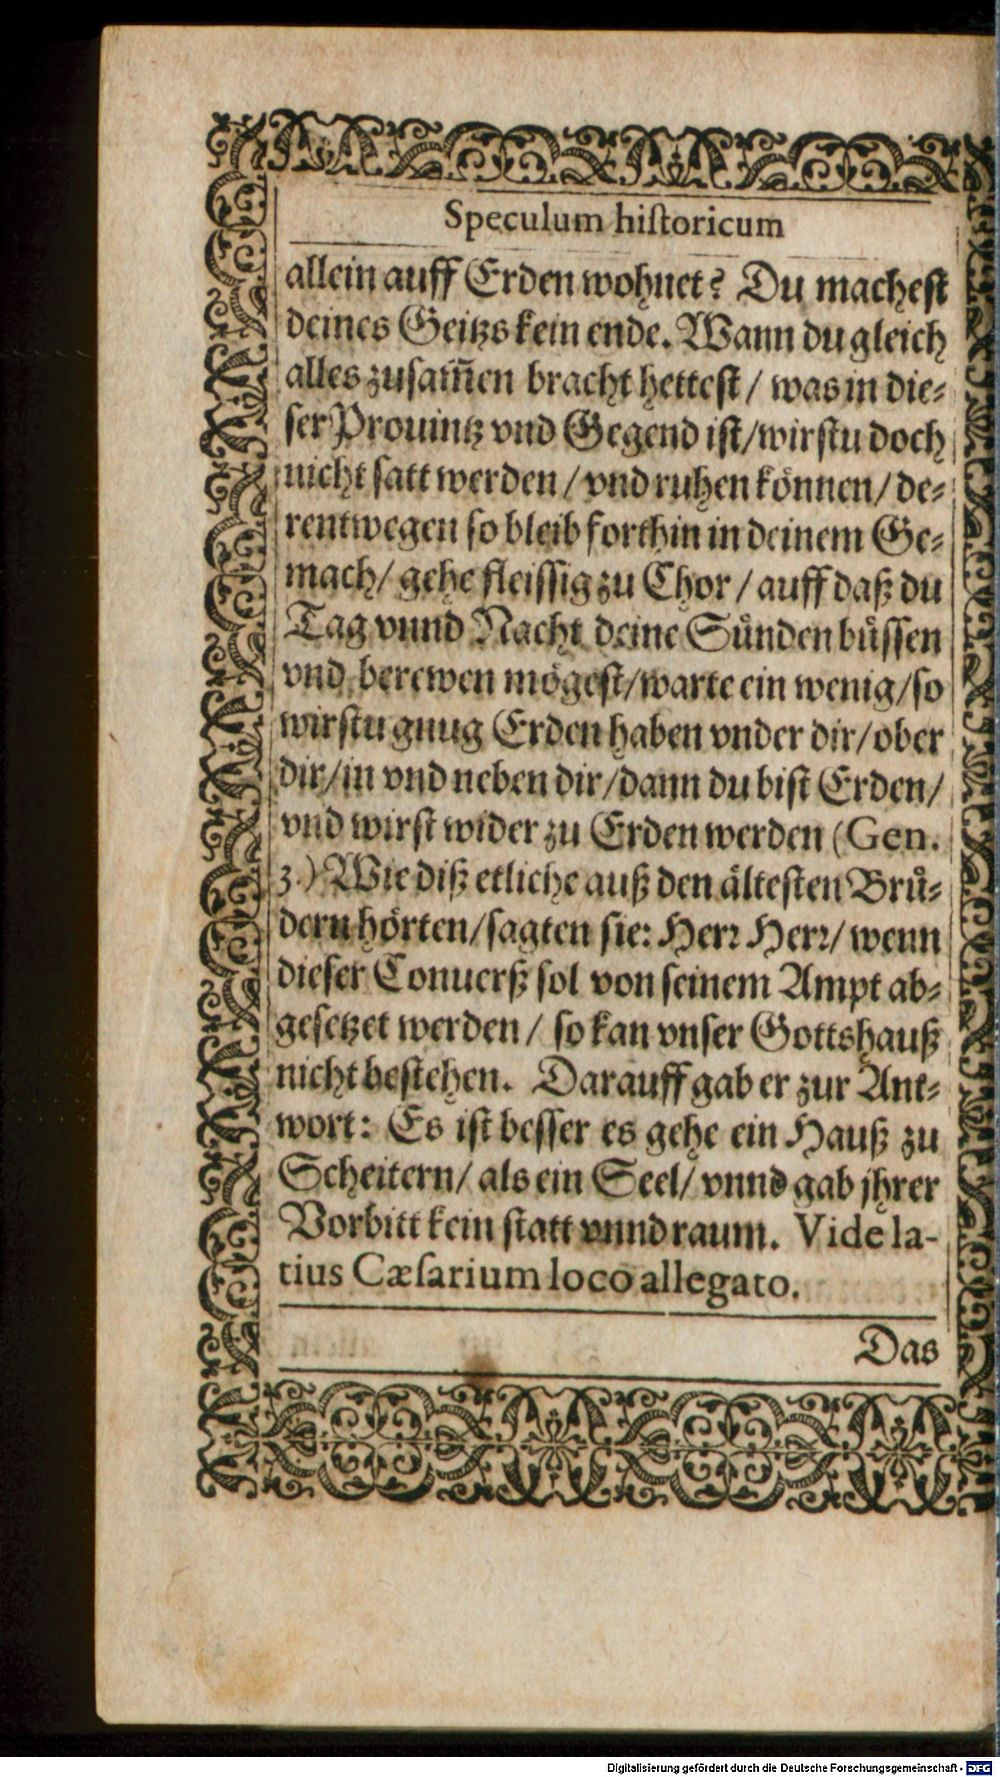 Speculum hiſtoricum
allein auff Erden wohnet? Du macheſt
deines Geitzs kein ende. Wann du gleich
alles zuſam̃en bracht hetteſt / was in die⸗
ſer Prouintz vnd Gegend iſt/wirſtu doch
nicht ſatt werden / vnd ruhen können/ de⸗
rentwegen ſo bleib forthin in deinem Ge⸗
mach/ gehe fleiſſig zu Chor / auff daß du
Tag vnnd Nacht deine Sünden büſſen
vnd berewen mögeſt/warte ein wenig/ſo
wirſtu gnug Erden haben vnder dir/ober
dir/in vnd neben dir/dann du biſt Erden/
vnd wirſt wider zu Erden werden (Gen.
3.) Wie diß etliche auß den älteſten Brü⸗
dern hörten/ſagten ſie: Herꝛ Herꝛ/ wenn
dieſer Conuerß ſol von ſeinem Ampt ab⸗
geſetzet werden / ſo kan vnſer Gottshauß
nicht beſtehen. Darauff gab er zur Ant⸗
wort: Es iſt beſſer es gehe ein Hauß zu
Scheitern/ als ein Seel/ vnnd gab jhrer
Vorbitt kein ſtatt vnnd raum. Vide la-
tius Cæſarium loco allegato.
Das
Digitalisierung gefördert durch die Deutsche Forschungsgemeinschaft - DFG